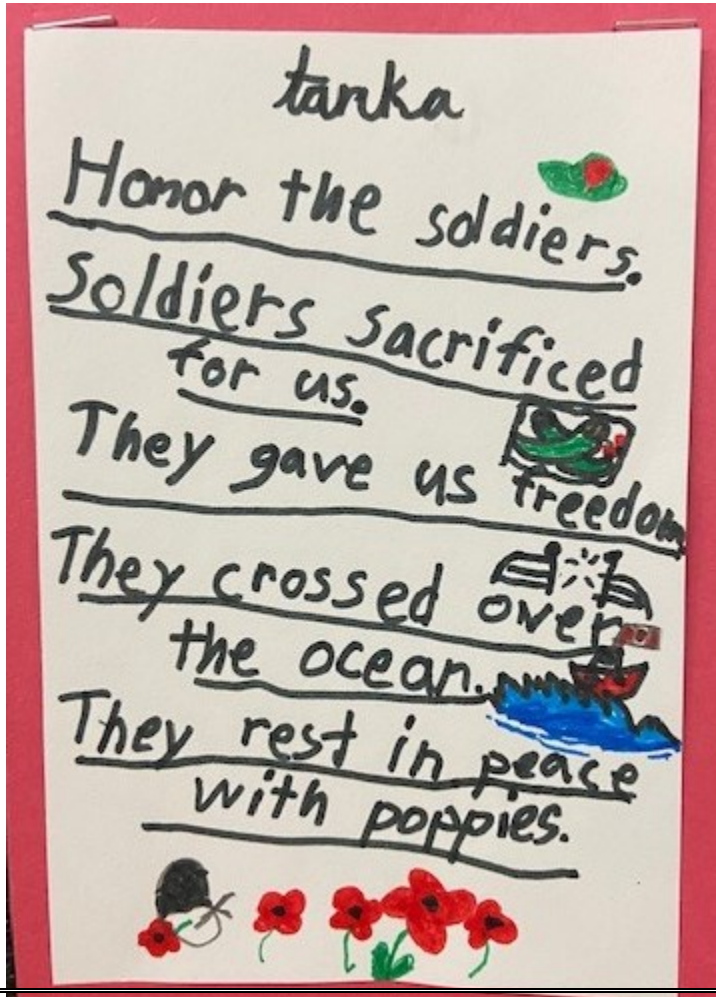 tanka
Honor the soldiers.
Soldiers sacrificed
for us.
They gave us freedom
They crossed over
the ocean.
They rest in peace
with poppies.